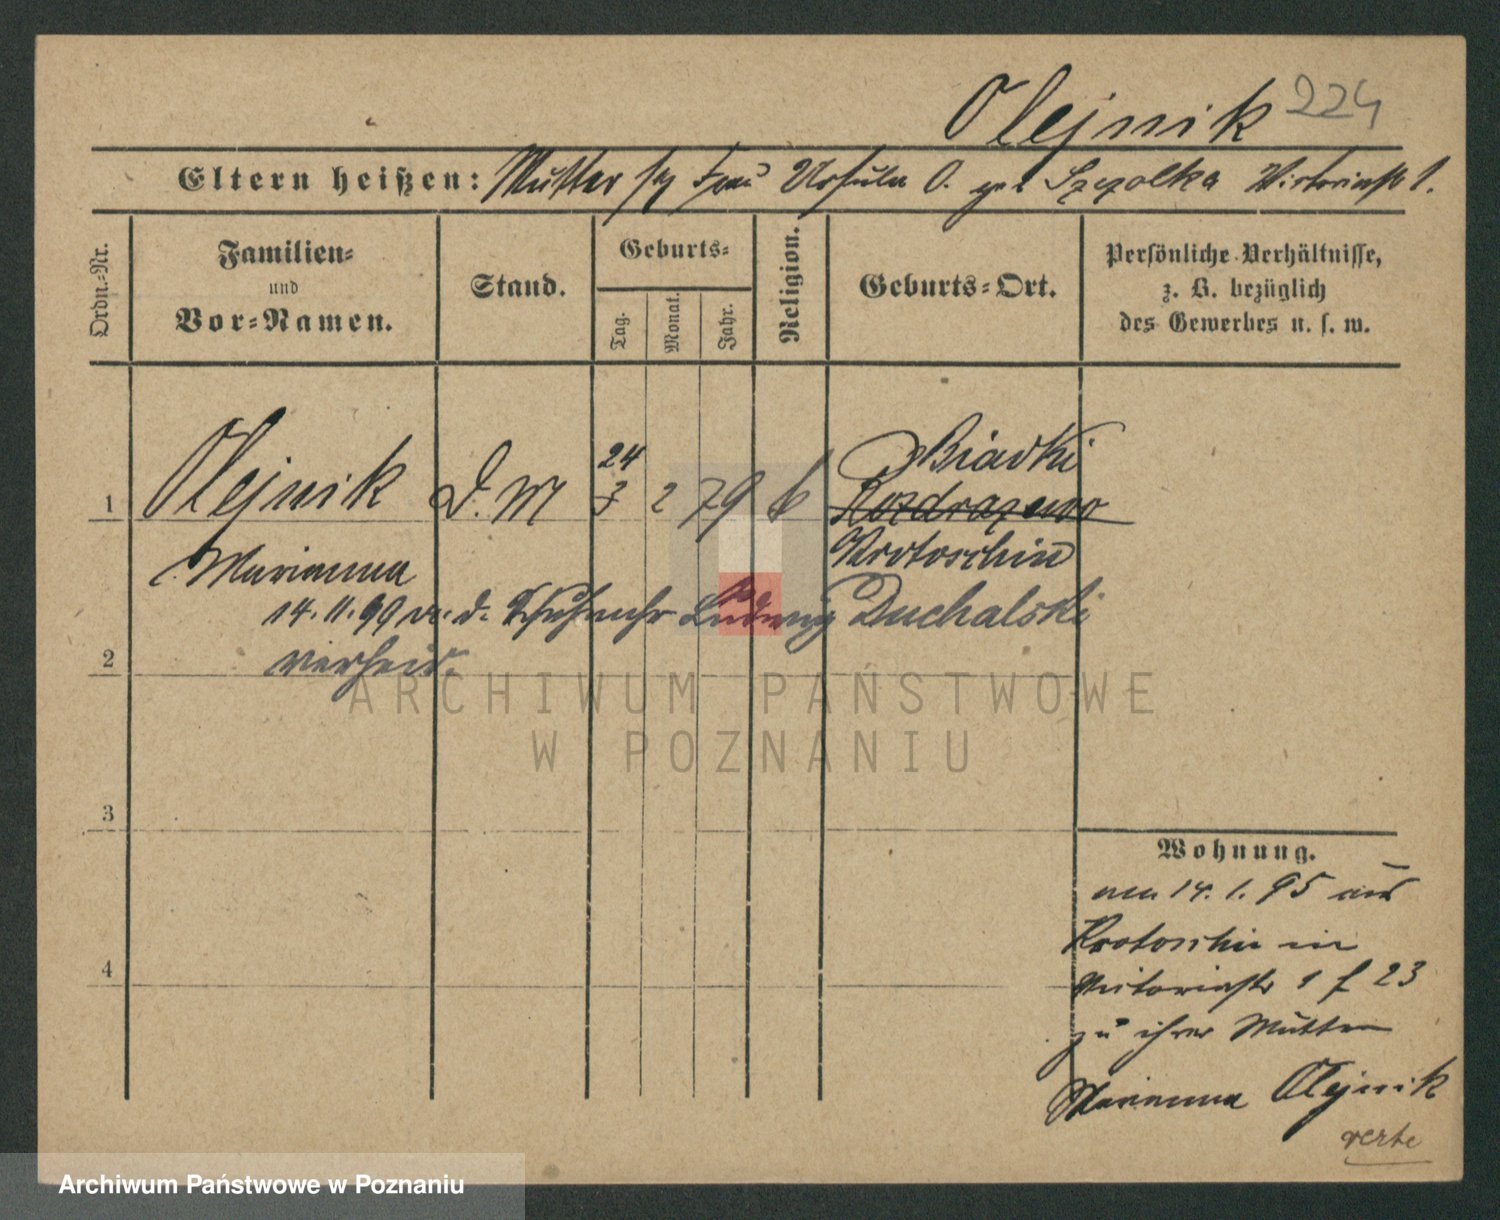 Olejnik 224
Eltern heißen: Mutter Frau Ursula O. geb. Szczolka Victoriastr 1.
Ordn.-Nr.
Familien- und Vor-Namen.
Stand.
Geburts-
Tag.
Monat.
Jahr.
Religion.
Geburts-Ort.
Persönliche Verhältnisse,
z. B. bezüglich
des Gewerbes u. s. w.
Biadki
24
1 Olejnik D. M 3 2 79 k Rozdrazewo
Marianna Krotoschin
14. 11. 99 m. d. Ludwig Duchalski
2 verheir.
3
4
Wohnung.
am 14. 1. 95 aus
Krotoschin in
Victoriastr 1 f 23
zu ihrer Mutter
Marianna Olejnik
verte
ARCHIWUM PAŃSTWOWE
W POZNANIU
Archiwum Państwowe w Poznaniu